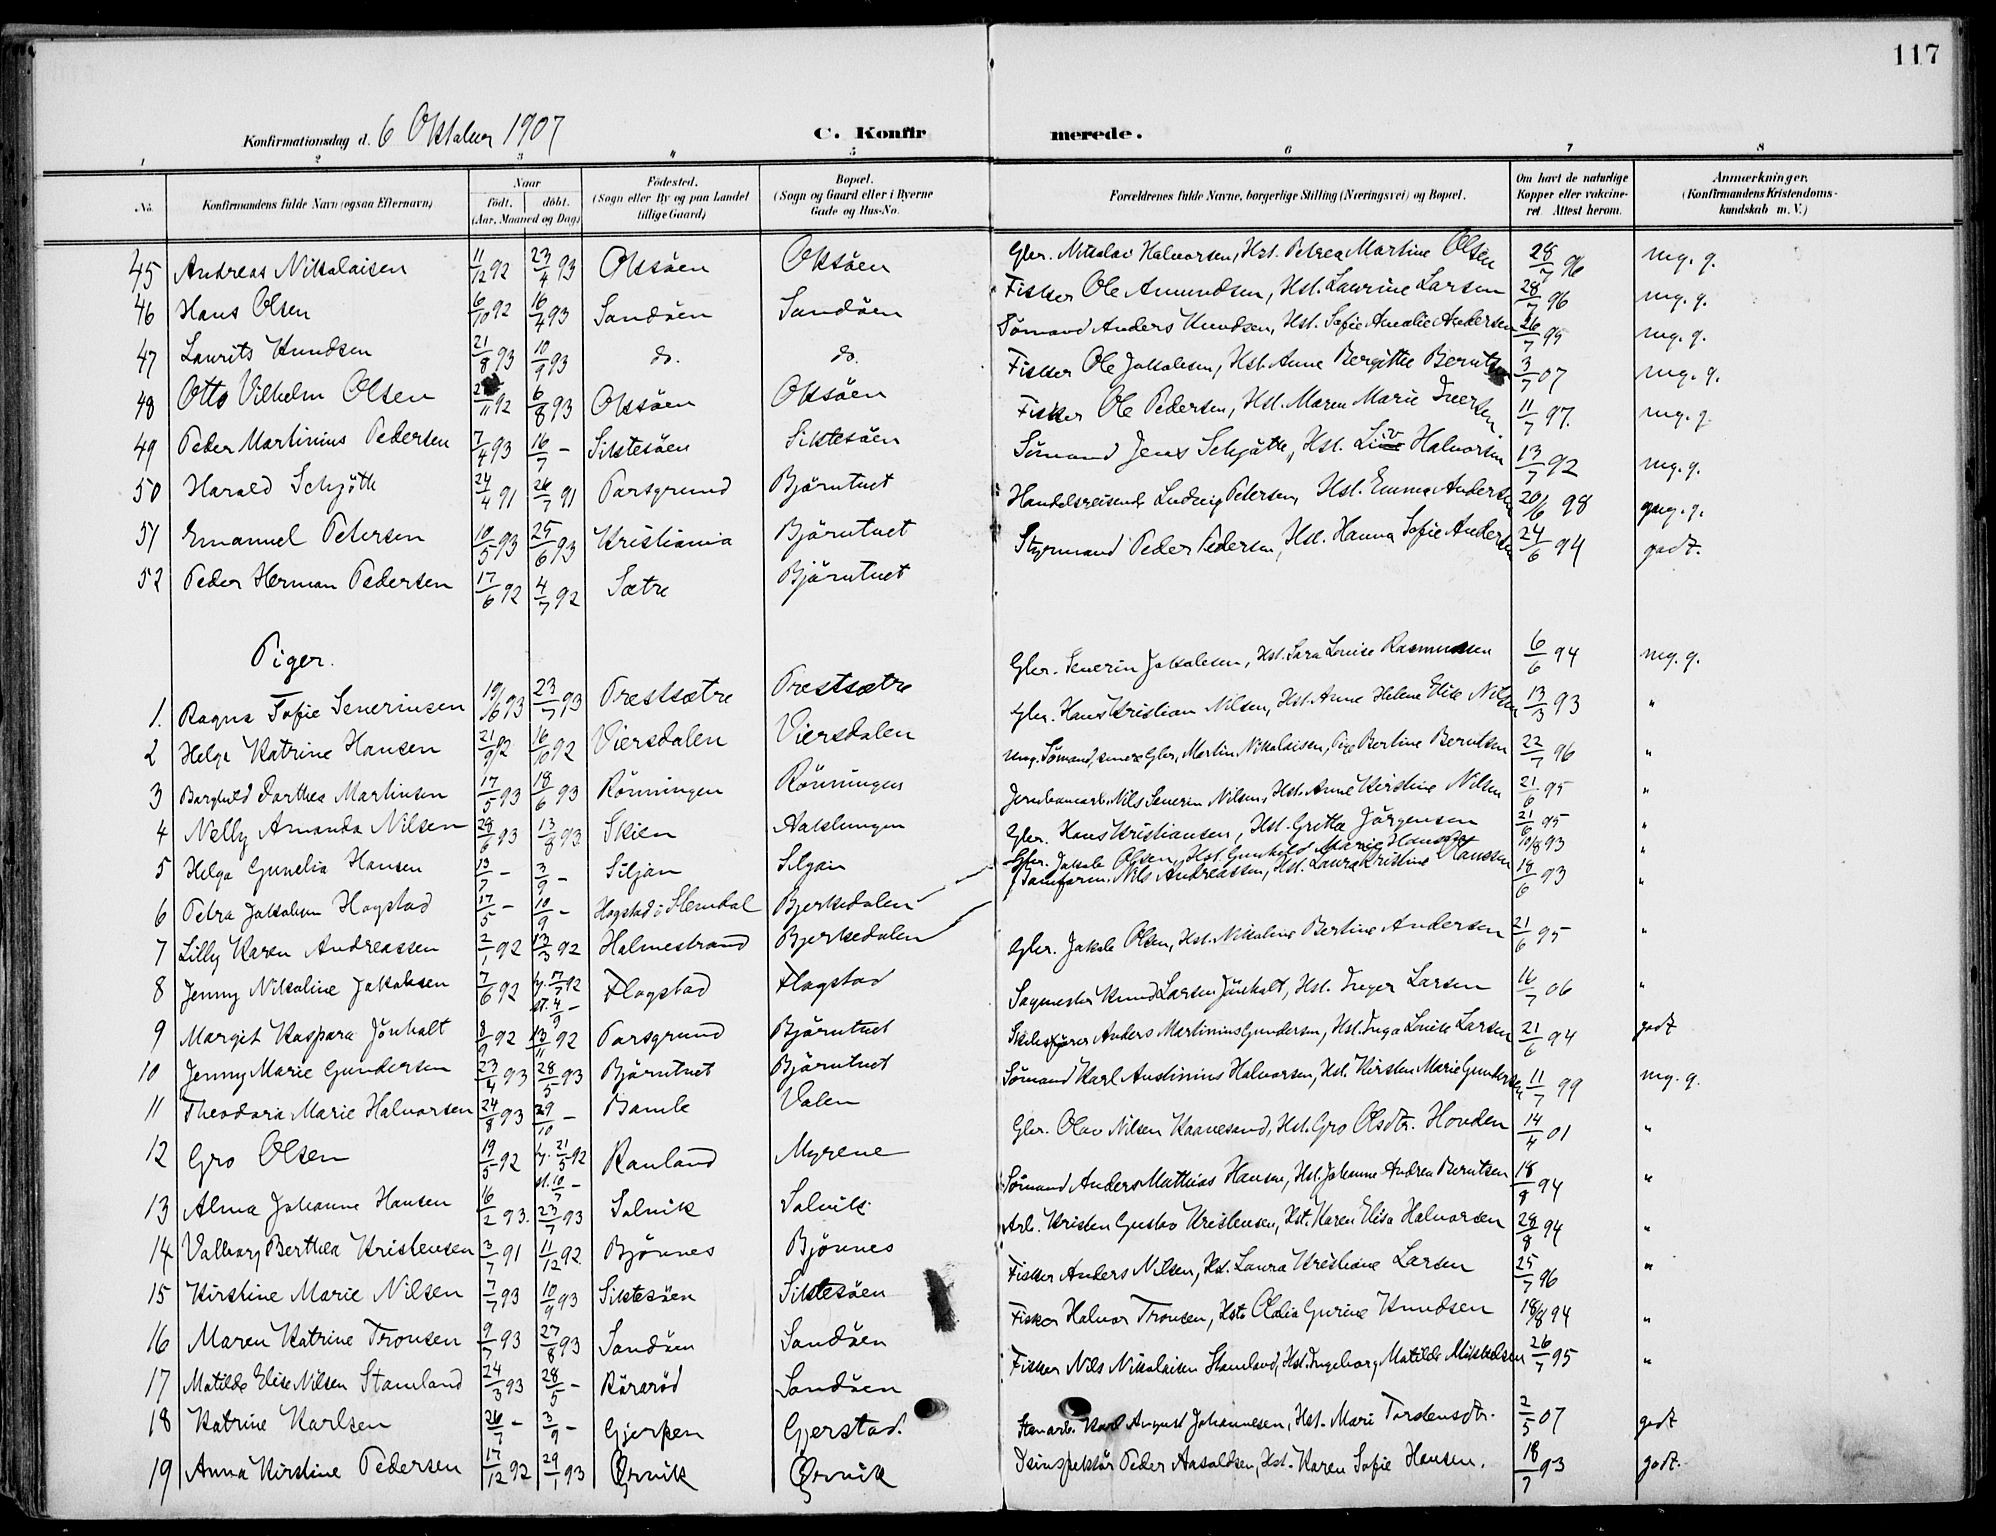 117
Konfirmationsdag d. 6 Oktober 1907
C. Konfir merede.
1 2 3 4 5 6 7 8
No. Konfirmandens fulde Navn (ogsaa Efternavn) Naar født. døbt. (Aar, Maaned og Dag) Fødested. (Sogn eller By og paa Landet tillige Gaard) Bopæl. (Sogn og Gaard eller i Byerne Gade og Hus-No. Forældrenes fulde Navne, borgerlige Stilling (Næringsvei) og Bopæl. Om havt de naturlige Kopper eller vakcineret Attest herom. Anmærkninger. (Konfirmandens Kristendomskundskab m. V.)
45 Andreas Nikolaisen 11/12 92 23/4 93 Oksöen Oksöen Gbr. Nikolai Halvorsen, Hst. Petrea Martine Olsen 28/7 96 mg. g.
46 Hans Olsen 6/10 92 16/4 93 Sandöen Sandöen Fisker Ole Amundsen, Hst. Laurine Larsen 28/7 96 mg. g.
47 Laurits Knudsen 21/8 93 10/9 93 do. do. Sømand Anders Knudsen, Hst. Sofie Amalie Andersen 26/7 95 mg. g.
48 Otto Vilhelm Olsen /11 92 6/8 93 Oksöen Oksöen Fisker Ole Jakobsen, Hst. Anne Bergitte Berntsen 3/7 07 mg. g.
49 Peder Martinius Pedersen 7/4 93 16/7 - Siktesöen Siktesöen Fisker Ole Pedersen, Hst. Maren Marie Iversen. 11/7 97. mg. g.
50 Harald Schjøtt 24/4 91 26/7 91 Porsgrund Björntvet Sömand Jens Schjøtt, Hst. Liv Halvorsen 13/7 92 mg. g.
51 Emanuel Petersen 10/5 93 25/6 93 Kristiania Björntvet Handelsreisende Ludvig Petersen, Hst. Emma Andersen 20/6 98 mg. g.
52 Peder Herman Pedersen 17/6 92 4/7 92 Sætre Björntvet Styrmand Peder Pedersen, Hst. Hanna Sofie Andersen 24/6 94 godt.
Piger.
1. Ragna Sofie Severinsen 19/6 93 23/7 93 Prestsætre Prestsætre Gbr. Severin Jakobsen, Hst. Sara Louise Rasmussen 6/6 94 mg. g.
2 Helga Katrine Hansen 21/9 92 16/10 92 Viersdalen Viersdalen Gbr. Hans Kristian Nilsen, Hst. Anne Helene Elise Nilsen 13/3 93 "
3 Borghild Dorthea Martinsen 17/5 93 18/6 93 Rönningen Rönningen Ung. Sømand, senere Gbr, Martin Nikolaisen, Pige Bertine Berntsen 22/7 96 "
4 Nelly Amanda Nilsen 28/6 93 13/8 93 Skien Aaklungen Jernbanearb. Nils Severin Nilsen, Hst. Anne Kirstine Nilsen 21/6 95 "
5 Helga Gunelia Hansen 13/7 - 3/9 - Siljan Siljan Gbr. Hans Kristiansen, Hst. Grethe Jörgensen 21/6 95 "
6 Petra Jakobsen Hogstad 17/5 - 10/9 - Hogstad i Slemdal Bjerkedalen Gbr. Jakob Olsen, Hst. Gunhild Marie Hansen 10/8 93 "
7 Lilly Karen Andreassen 2/1 92 13/3 92 Holmestrand Bjerkedalen Nils Andreassen, Hst. Laura Kristine Hanssen 18/6 93 "
8 Jenny Nikoline Jakobsen 7/6 92 hj. 17/7 92 st. 4/9 - Flogstad Flogstad Gbr. Jakob Olsen, Hst. Nikoline Bertine Andersen 21/6 95 "
9 Margit Kaspara Jönholt 8/9 92 13/11 92 Porsgrund Björntvet Sagmester Knud Larsen Jönholt, Hst. Inger Larsen 16/7 06 "
10 Jenny Marie Gundersen 23/4 93 28/5 93 Björntvet Björntvet Skibsfører Anders Martinius Gundersen, Hst. Inga Louise Larsen 21/6 94 godt
11 Theodora Marie Halvorsen 24/8 93 29/10 - Bamle Valen Sømand Karl Anstinius Halvorsen, Hst. Kirsten Marie Gundersen 11/7 99 mg. g.
12 Gro Olsen 19/5 92 hj. 21/5 92 st. 10/7 - Rauland Myrene Gbr. Olav Nilsen Kaavesand, Hst. Gro Olsdtr. Hovden 14/4 01 "
13 Alma Johanne Hansen 16/2 93. 23/7 93 Solvik Solvik Sømand Anders Mathias Hansen, Hst. Johanne Andrea Berntsen 18/8 94 "
14 Valborg Berthea Kristensen 3/7 91 11/12 92. Bjønnes Bjønnes Arb. Kristen Gustav Kristensen, Hst. Karen Elisa Halvorsen 28/8 94 "
15 Kirstine Marie Nilsen 7/7 93 10/9 93 Siktesöen Siktesöen Fisker Anders Nilsen, Hst. Laura Kristiane Larsen 25/7 96 "
16 Maren Katrine Tronsen 9/7 93 27/8 93 Sandöen Sandöen Fisker Halvor Tronsen, Hst. Olalia Gurine Knudsen 18/8 94 "
17 Matilde Elise Nilsen Stamland 24/3 93 28/5 - Rörarød Sandöen Fisker Nils Nikolaisen Stamland, Hst. Ingeborg Matilde Mikkelsen 26/7 95 "
18 Katrine Karlsen 26/7 - 3/9 - Gjerpen Gjerstad. Stenarb. Karl August Johannesen, Hst. Mari Torstensdtr. 2/5 07 godt
19 Anna Kirstine Pedersen 17/12 92 29/1 93 Ørvik Ørvik Isinspektör Peder Aasoldsen, Hst. Karen Sofie Hansen. 18/7 93 godt.